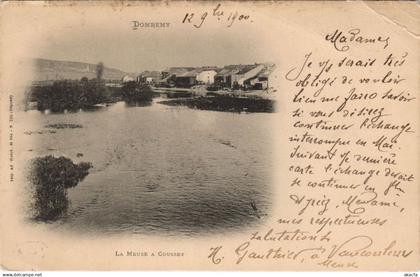 DOMREMY
12 9bre 1900
Madame,
Je vous serais très
obligé de vouloir
bien me faire savoir
si vous désirez
continuer l'échange
interrompu en Mai.
Suivant je dernière
carte l'échange devait
se continuer en
Agréez, Madame,
mes respectueuses
salutations
H. Gauthier, à Vaucouleurs
Meuse
LA MEUSE A COUSSEY